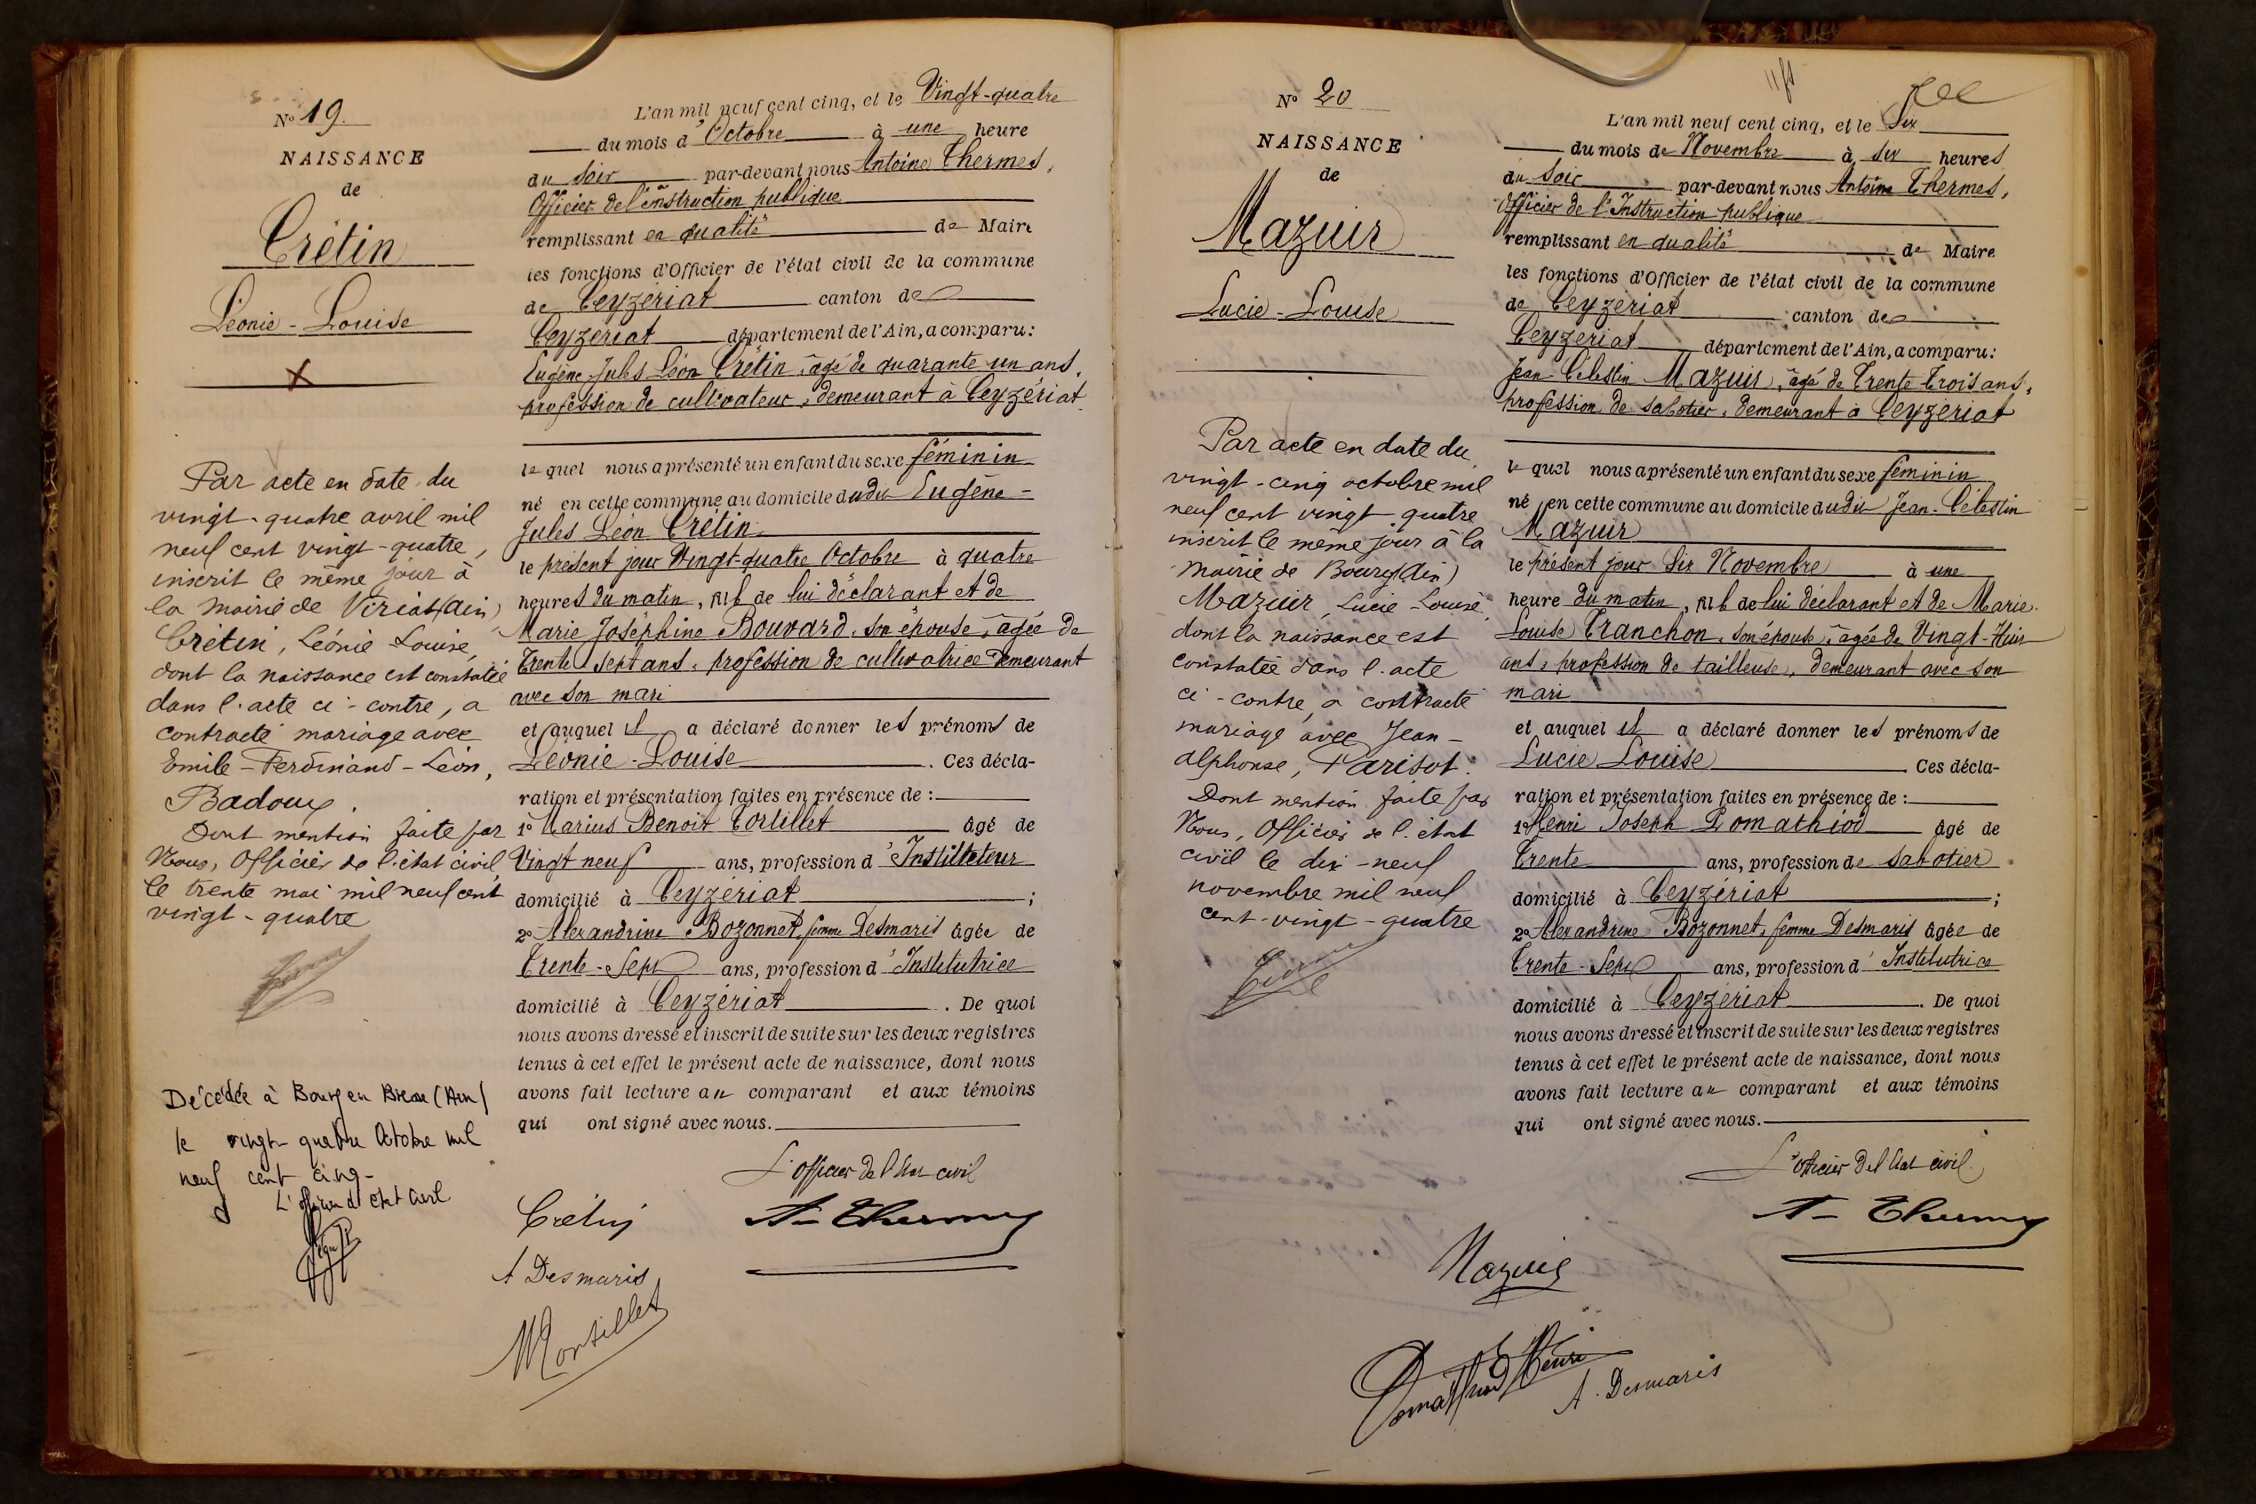 N° 19.
NAISSANCE
de
Crétin
Léonie-Louise
X
Par acte en date du
vingt-quatre avril mil
neuf cent vingt-quatre,
inscrit le même jour à
la mairie de Viriat (Ain)
Crétin, Léonie Louise,
dont la naissance est constatée
dans l'acte ci-contre, a
contracté mariage avec
Emile-Ferdinand-Léon,
Badoux.
Dont mention faite par
Nous, Officier de l'état civil
le trente mai mil neuf cent
vingt-quatre
Décédée à Bourg en Bresse (Ain)
le vingt-quatre Octobre mil
neuf cent cinq-
L'officier d'état civil
L'an mil neuf cent cinq, et le Vingt-quatre
du mois d'Octobre à une heure
du soir par-devant nous Antoine Thermes,
Officier de l'instruction publique
remplissant en qualité de Maire
les fonctions d'Officier de l'état civil de la commune
de Ceyzériat canton de
Ceyzériat département de l'Ain, a comparu:
Eugène-Jules Léon Crétin, âgé de quarante un ans,
profession de cultivateur, demeurant à Ceyzériat
lequel nous a présenté un enfant du sexe féminin
né en cette commune au domicile dudit Eugène-
Jules Léon Crétin
le présent jour Vingt-quatre Octobre à quatre
heures du matin, fille de lui déclarant et de
Marie Joséphine Bouvard, son épouse, âgée de
Trente sept ans, profession de cultivatrice demeurant
avec son mari
et auquel il a déclaré donner les prénoms de
Léonie-Louise. Ces décla-
ration et présentation faites en présence de:
1° Marius Benoit Tortillet âgé de
Vingt neuf ans, profession d'Instituteur
domicilié à Ceyzériat;
2° Alexandrine Bozonnet, femme Desmaris âgée de
Trente-Sept ans, profession d'Institutrice
domicilié à Ceyzériat. De quoi
nous avons dressé et inscrit de suite sur les deux registres
tenus à cet effet le présent acte de naissance, dont nous
avons fait lecture au comparant et aux témoins
qui ont signé avec nous.
L'officier de l'état civil
Crétin
A-Thermes
A Desmaris
N° 20
NAISSANCE
de
Mazuir
Lucie-Louise
Par acte en date du
vingt-cinq octobre mil
neuf cent vingt quatre
inscrit le même jour à la
mairie de Bourg (Ain)
Mazuir, Lucie-Louise,
dont la naissance est
constatée dans l'acte
ci-contre, a contracté
mariage avec Jean-
Alphonse, Parisot.
Dont mention faite par
Nous, Officier de l'état
civil le dix-neuf
novembre mil neuf
cent-vingt-quatre
L'an mil neuf cent cinq, et le Six
du mois de Novembre à six heures
du soir par-devant nous Antoine Thermes,
Officier de l'Instruction publique
remplissant en qualité de Maire
les fonctions d'Officier de l'état civil de la commune
de Ceyzériat canton de
Ceyzériat département de l'Ain, a comparu:
Jean-Célestin Mazuir, âgé de Trente Trois ans,
profession de sabotier, demeurant à Ceyzériat
lequel nous a présenté un enfant du sexe féminin
né en cette commune au domicile dudit Jean-Célestin
Mazuir
le présent jour Six Novembre à une
heure du matin, fille de lui déclarant et de Marie
Louise Tranchon, son épouse, âgée de Vingt-Huit
ans, profession de tailleuse, demeurant avec son
mari
et auquel il a déclaré donner les prénoms de
Lucie Louise. Ces décla-
ration et présentation faites en présence de:
1° Henri Joseph Pomathiod âgé de
Trente ans, profession de sabotier
domicilié à Ceyzériat;
2° Alexandrine Bozonnet, femme Desmaris âgée de
Trente-Sept ans, profession d'Institutrice
domicilié à Ceyzériat. De quoi
nous avons dressé et inscrit de suite sur les deux registres
tenus à cet effet le présent acte de naissance, dont nous
avons fait lecture au comparant et aux témoins
qui ont signé avec nous.
L'officier de l'état civil
A-Thermes
Mazuir
Pomathiod Henri
A. Desmaris